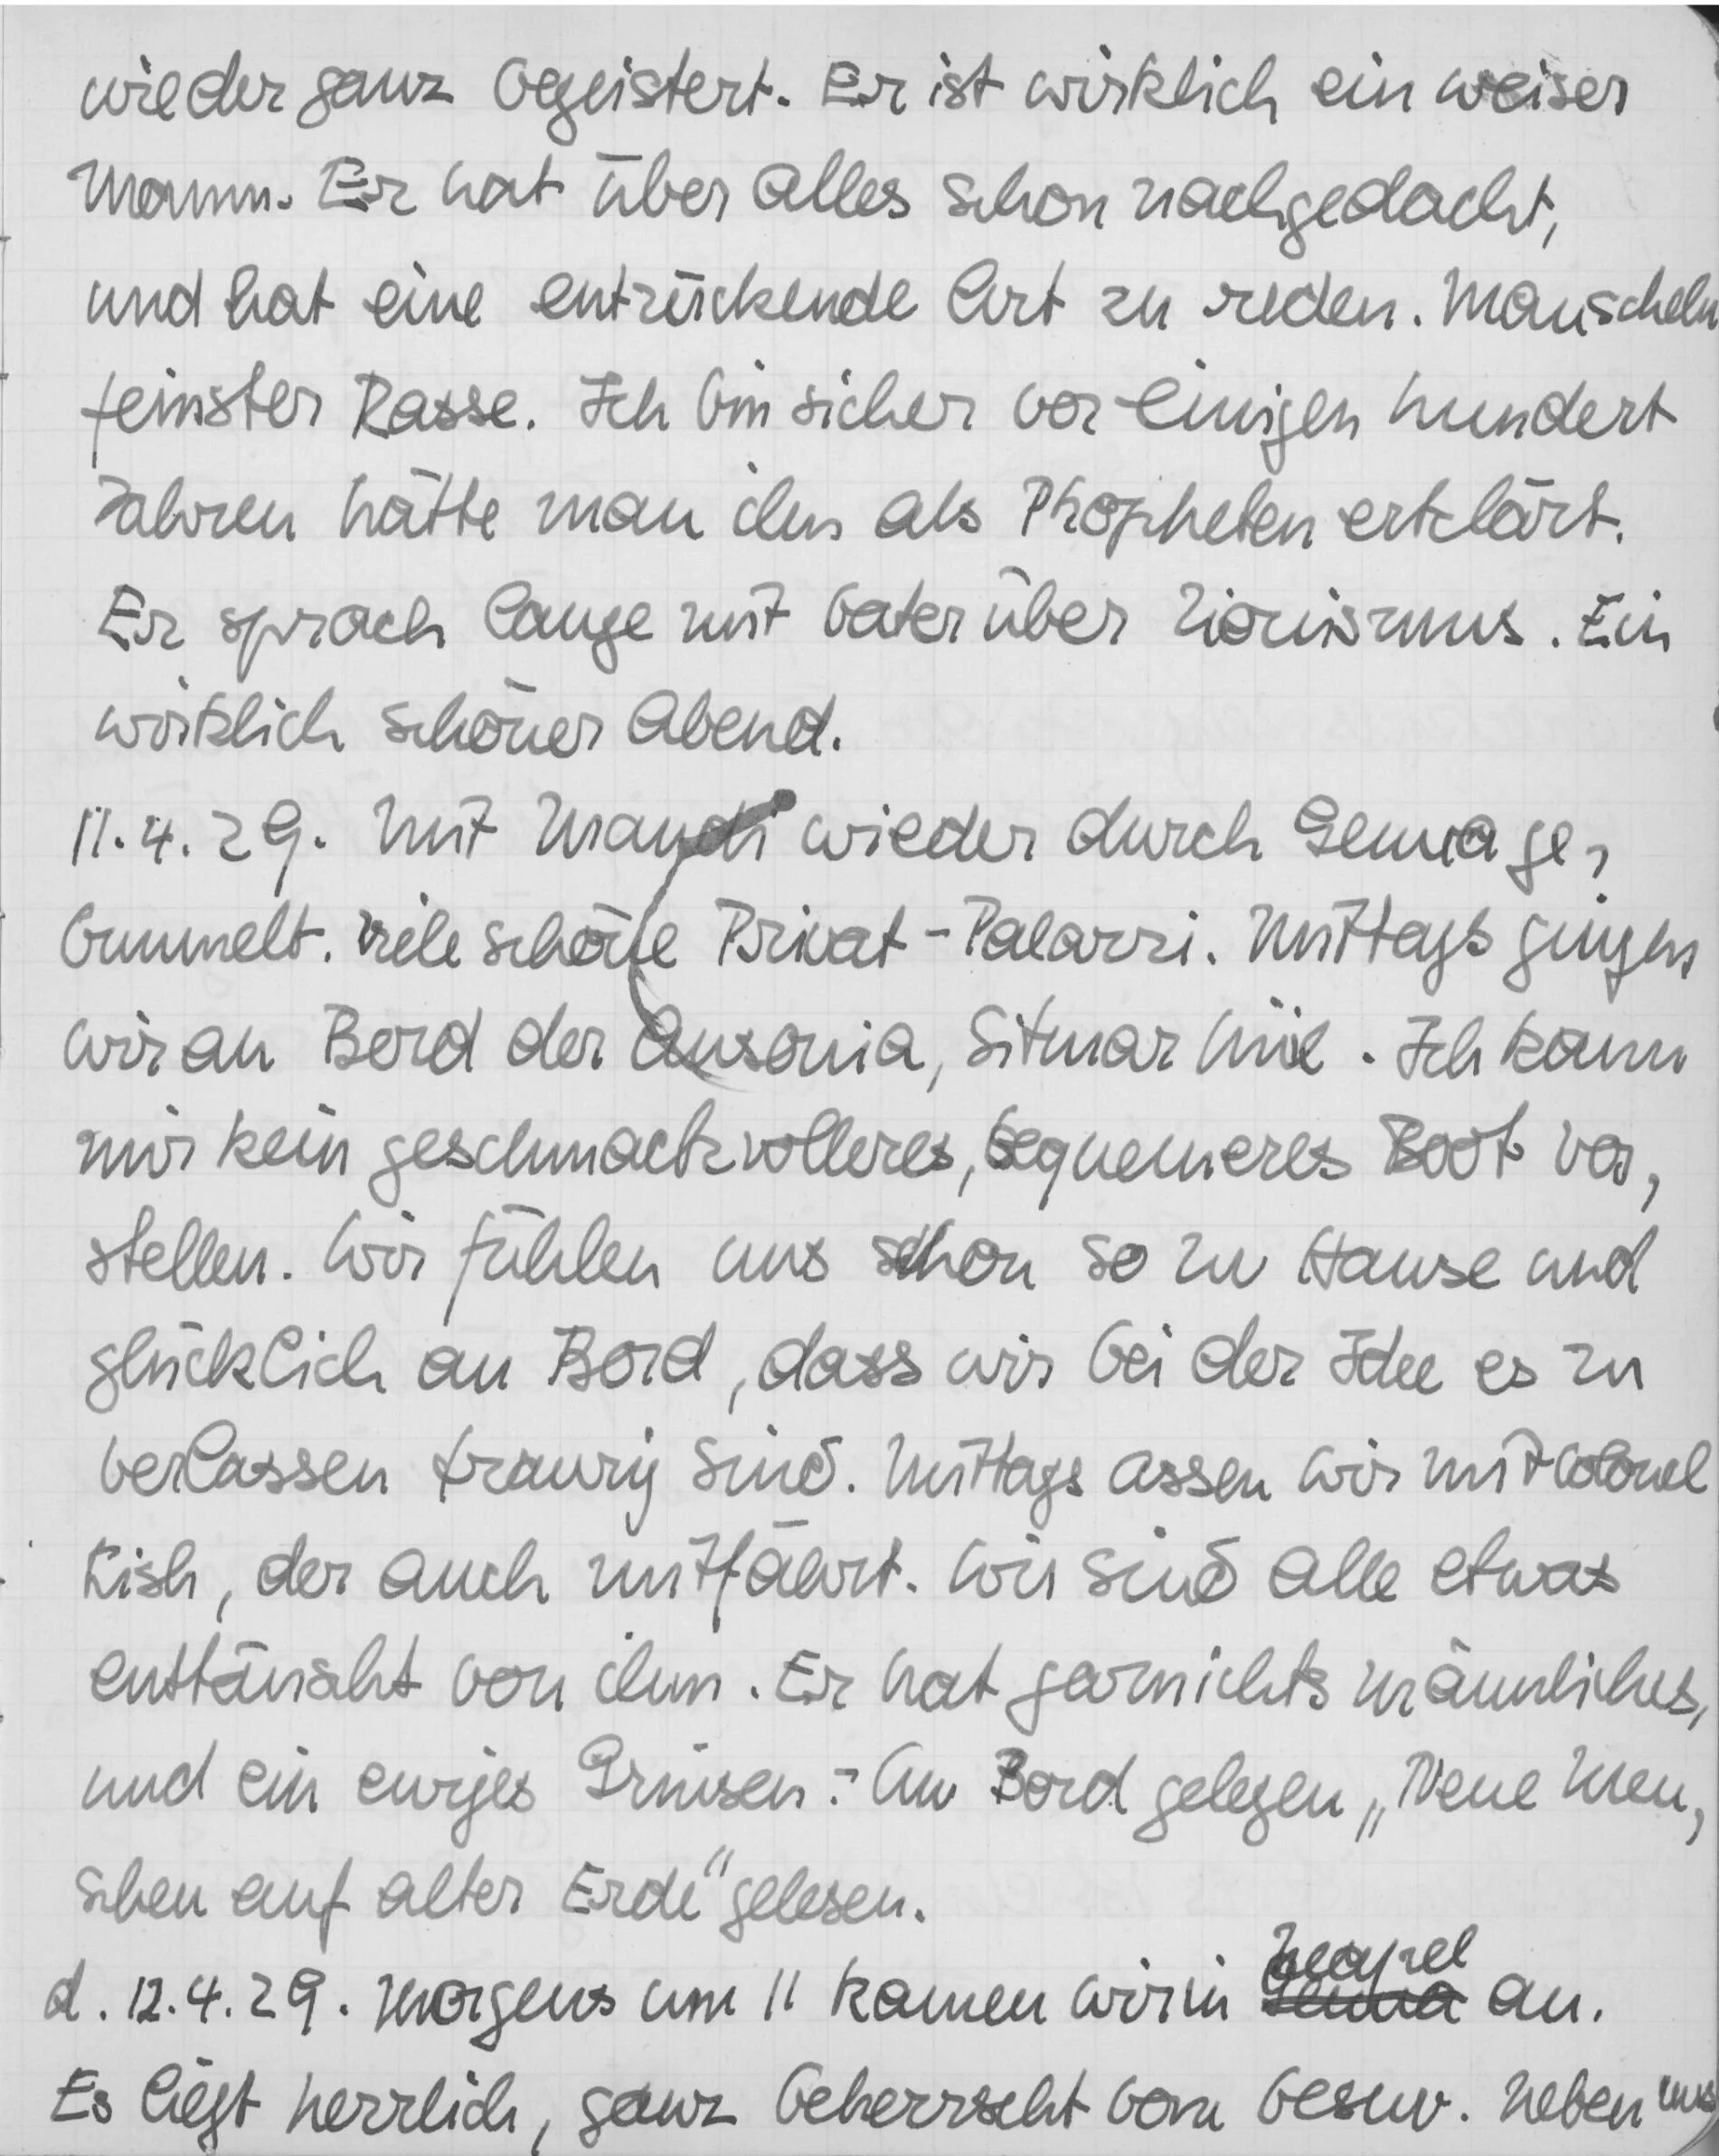 wieder ganz begeistert. Er ist wirklich ein weiser
Mann. Er hat über alles schon nachgedacht,
und hat eine entzückende Art zu reden. Mauscheln
feinster Rasse. Ich bin sicher vor einigen hundert
Jahren hätte man ihn als Propheten erklärt.
Er sprach lange mit Vater über Zionismus. Ein
wirklich schöner Abend.
11.4.29. Mit Mandi wieder durch Genua ge,
bummelt. Viele schöne Privat-Palazzi. Mittags gingen
wir an Bord der Ausonia, Sitmar Linie. Ich kann
mir kein geschmackvolleres, bequemeres Boot vor,
stellen. Wir fühlen uns schon so zu Hause und
glücklich an Bord, dass wir bei der Idee es zu
verlassen traurig sind. Mittags assen wir mit Colonel
Kish, der auch mitfährt. Wir sind alle etwas
enttäuscht von ihm. Er hat garnichts männliches,
und ein ewiges Grinsen. - An Bord gelegen „Neue Men,
schen auf alter Erde" gelesen.
d. 12.4.29. Morgens um 11 kamen wir in Genua Neapel an.
Es liegt herrlich, ganz beherrscht vom Vesuv. Neben uns